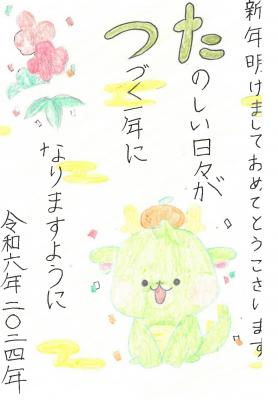 新年明けましておめでとうございます
たのしい日々が
つづく一年に
なりますように
令和六年二〇二四年